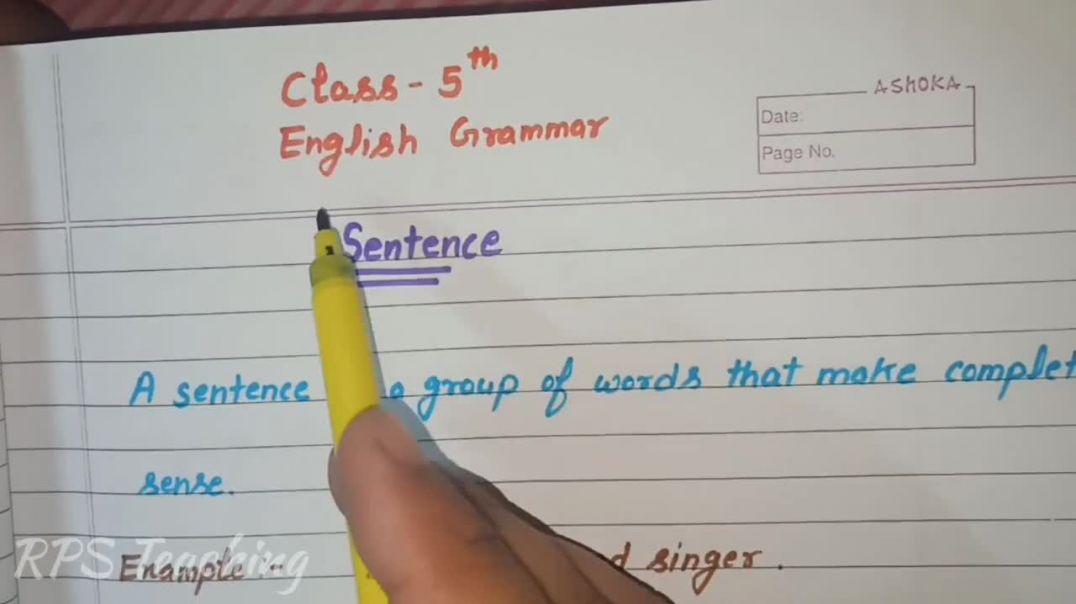 Class - 5th
English Grammar
ASHOKA
Date:
Page No.
Sentence
A sentence a group of words that make complet
sense.
Example :- singer.
RPS Teaching